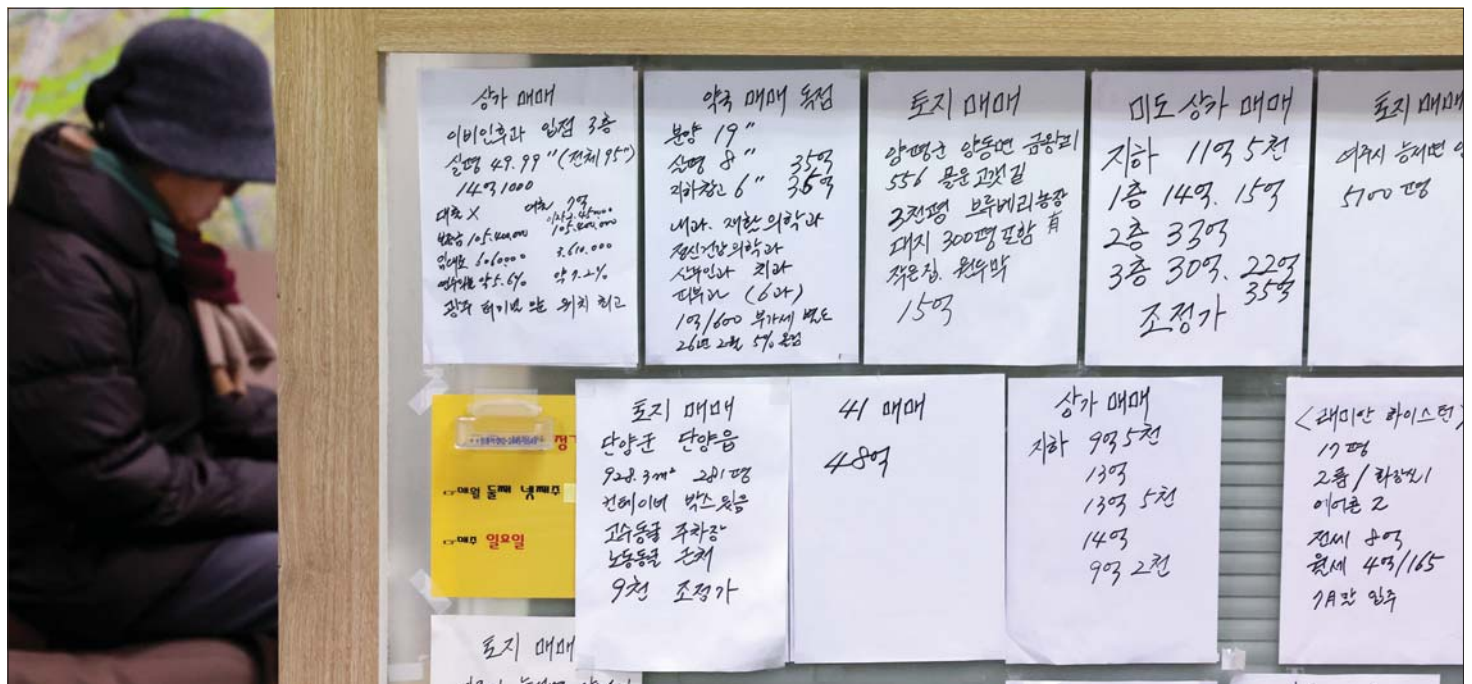 상가 매매
이비인후과 입점 3층
실평 49.99" (전체 95")
14억1000
대출 X 대출 7억
보증금 105.400.000 105.400.000
임대료 6060000 3.610.000
연수익률 약5.6% 약7.2%
광주 터미널 앞 위치 최고
약국 매매 독점
분양 19"
실평 8" 35억
지하창고 6" 35억
내과. 재활의학과
정신건강의학과
산부인과 치과
피부과 (6과)
1억/600 부가세 별도
26년 2월 5% 올림
토지 매매
양평군 양동면 금왕리
556 몰운고갯길
3천평 브루베리농장
대지 300평포함 有
작은집. 원두막
15억
미도 상가 매매
지하 11억 5천
1층 14억. 15억
2층 33억
3층 30억. 22억
35억
조정가
토지 매매
여주시 능서면
5700평
정
☞매일 둘째 넷째주
☞매주 일요일
토지 매매
단양군 단양읍
928.3m² 281평
컨테이너 박스있음
고수동굴 주차장
노동동굴 근처
9천 조정가
41 매매
48억
상가 매매
지하 9억5천
13억
13억 5천
14억
9억 2천
<래미안 하이스턴>
17평
2룸 / 화장실1
에어콘 2
전세 8억
월세 4억/165
7月말 입주
토지 매매